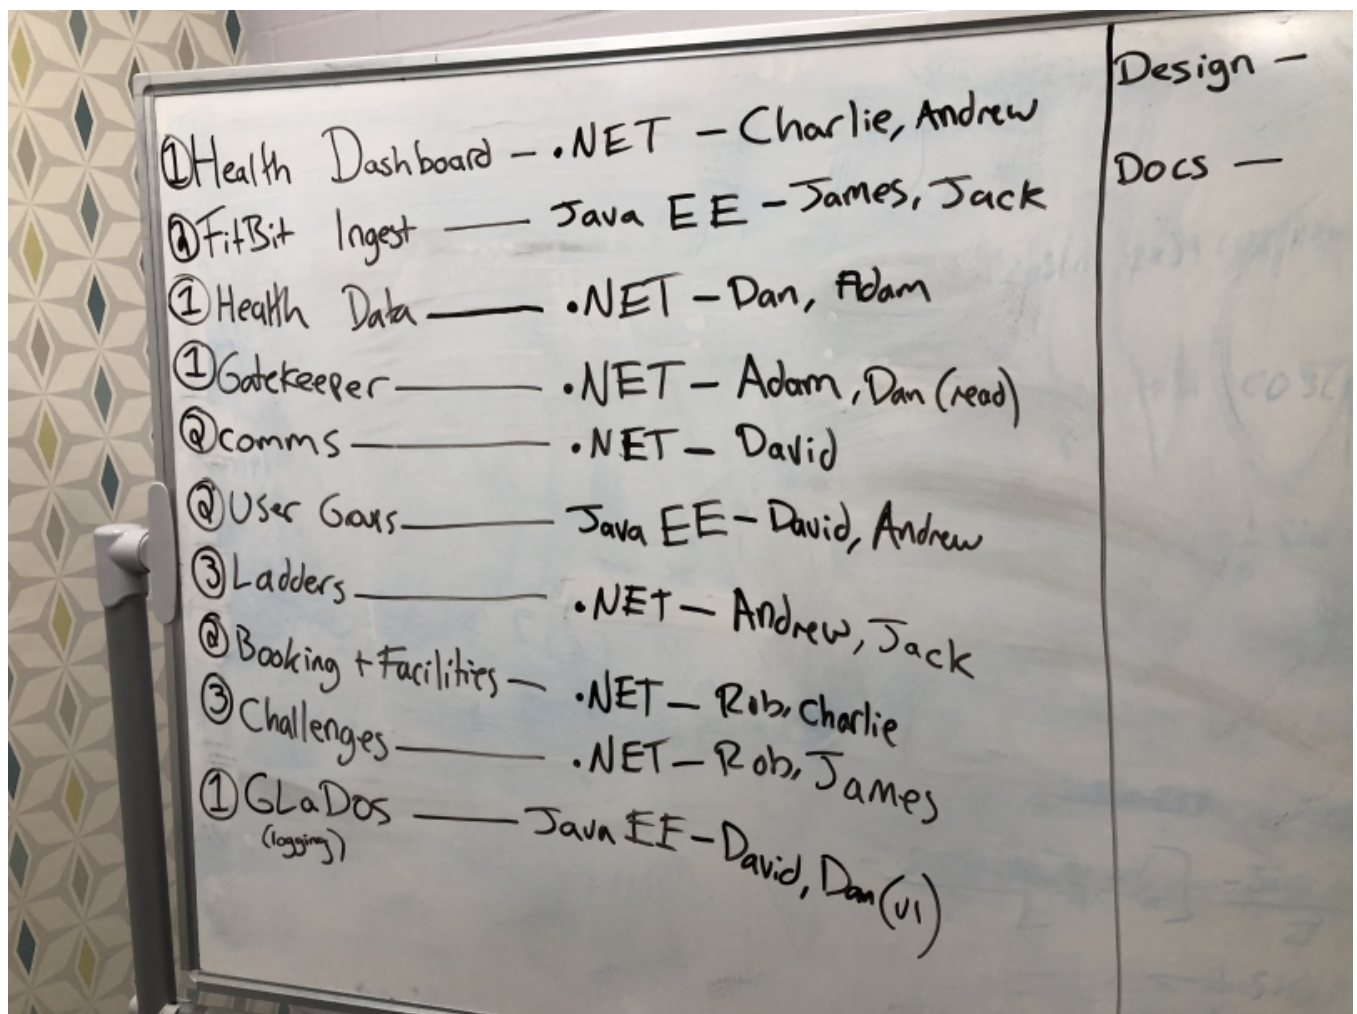 ①Health Dashboard - .NET - Charlie, Andrew
②FitBit Ingest - Java EE - James, Jack
①Health Data - .NET - Dan, Adam
①Gatekeeper - .NET - Adam, Dan (read)
②comms - .NET - David
②User Goals - Java EE - David, Andrew
③Ladders - .NET - Andrew, Jack
②Booking + Facilities - .NET - Rob, Charlie
③Challenges - .NET - Rob, James
①GLaDOS - Java EE - David, Dan (v1)
(logging)
Design -
Docs -